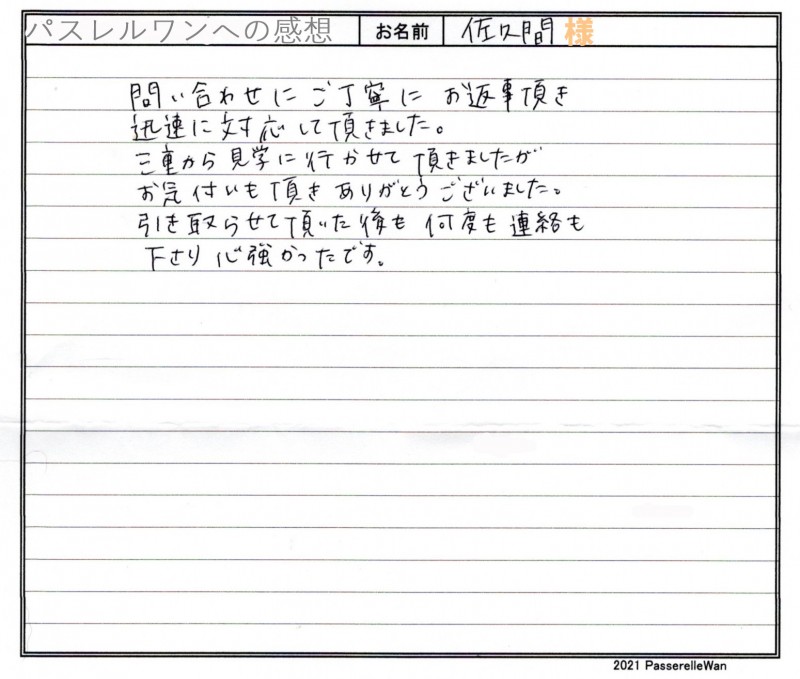 パスレルワンへの感想 お名前 佐久間 様
問い合わせにご丁寧にお返事頂き
迅速に対応して頂きました。
三重から見学に行かせて頂きましたが
お気付いも頂きありがとうございました。
引き取らせて頂いた後も何度も連絡も
下さり心強かったです。
2021 PasserelleWan